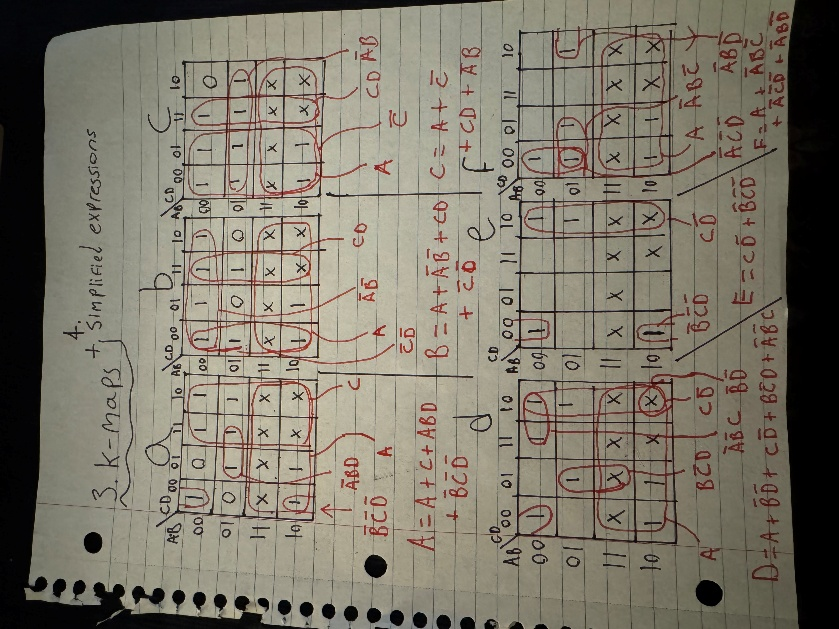 3. K-maps + 4. Simplified expressions
a
AB CD 00 01 11 10
00 1 0 1 1
01 0 1 1 1
11 X X X X
10 1 1 X X
C
A
A̅BD
B̅C̅D̅
A=A+C+ABD
+ B̅C̅D̅
b
AB CD 00 01 11 10
00 1 1 1 1
01 1 0 1 0
11 X X X X
10 1 1 X X
CD
A̅B̅
A
C̅D̅
B=A+A̅B̅+CD
+ C̅D̅
c
AB CD 00 01 11 10
00 1 1 1 0
01 1 1 1 1
11 X X X X
10 1 1 X X
A̅B
CD
C̅
A
C=A+C̅
+CD+A̅B
d
AB CD 00 01 11 10
00 1 1 1
01 1 1
11 X X X X
10 1 1 X X
A
BC̅D
CD̅
A̅B̅C
B̅D̅
D=A+B̅D̅+CD̅+BC̅D+A̅B̅C
e
AB CD 00 01 11 10
00 1 1
01 1
11 X X X X
10 1 X X
B̅C̅D̅
CD̅
E=CD̅+B̅C̅D̅
f
AB CD 00 01 11 10
00 1
01 1 1 1
11 X X X X
10 1 1 X X
A̅C̅D̅
A
A̅BC̅
A̅BD̅
F=A+A̅BC̅
+A̅C̅D̅+A̅BD̅